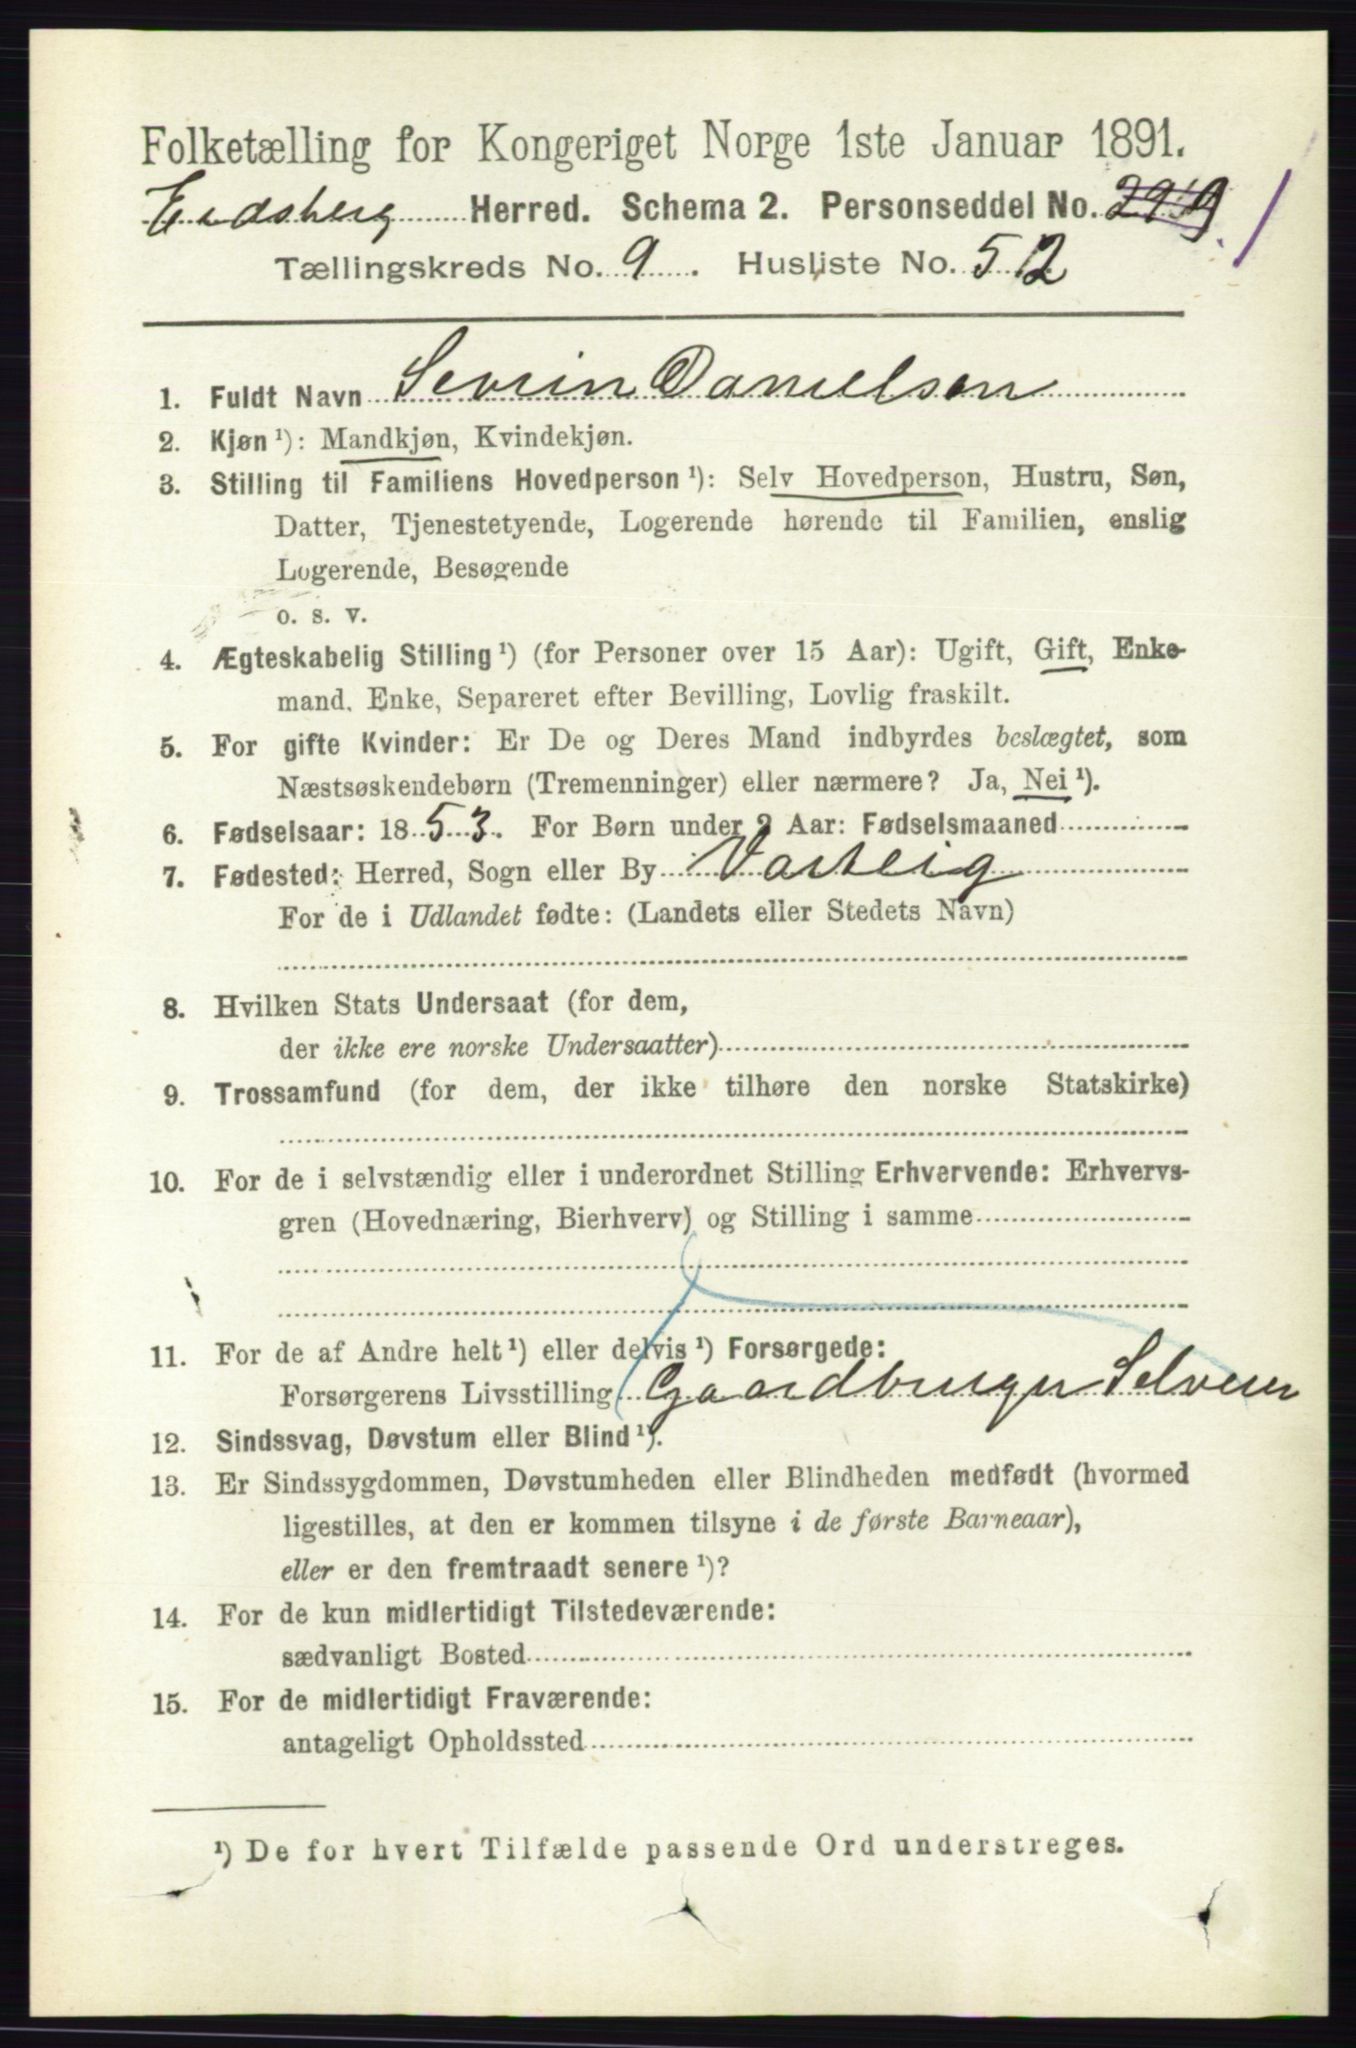 Folketælling for Kongeriget Norge 1ste Januar 1891.
Eidsberg Herred. Schema 2. Personseddel No. 1
Tællingskreds No. 9. Husliste No. 52
1. Fuldt Navn Severin Danielsen
2. Kjøn ¹): Mandkjøn, Kvindekjøn.
3. Stilling til Familiens Hovedperson ¹): Selv Hovedperson, Hustru, Søn,
Datter, Tjenestetyende, Logerende hørende til Familien, enslig
Logerende, Besøgende
o. s. v.
4. Ægteskabelig Stilling ¹) (for Personer over 15 Aar): Ugift, Gift, Enke-
mand, Enke, Separeret efter Bevilling, Lovlig fraskilt.
5. For gifte Kvinder: Er De og Deres Mand indbyrdes beslægtet, som
Næstsøskendebørn (Tremenninger) eller nærmere? Ja, Nei ¹).
6. Fødselsaar: 1853. For Børn under 2 Aar: Fødselsmaaned
7. Fødested: Herred, Sogn eller By Varteig
For de i Udlandet fødte: (Landets eller Stedets Navn)
8. Hvilken Stats Undersaat (for dem,
der ikke ere norske Undersaatter)
9. Trossamfund (for dem, der ikke tilhøre den norske Statskirke)
10. For de i selvstændig eller i underordnet Stilling Erhvervende: Erhvervs-
gren (Hovednæring, Bierhverv) og Stilling i samme
11. For de af Andre helt ¹) eller delvis ¹) Forsørgede:
Forsørgerens Livsstilling Gaardbruger Selveier
12. Sindssvag, Døvstum eller Blind ¹).
13. Er Sindssygdommen, Døvstumheden eller Blindheden medfødt (hvormed
ligestilles, at den er kommen tilsyne i de første Barneaar),
eller er den fremtraadt senere ¹)?
14. For de kun midlertidigt Tilstedeværende:
sædvanligt Bosted
15. For de midlertidigt Fraværende:
antageligt Opholdssted
¹) De for hvert Tilfælde passende Ord understreges.